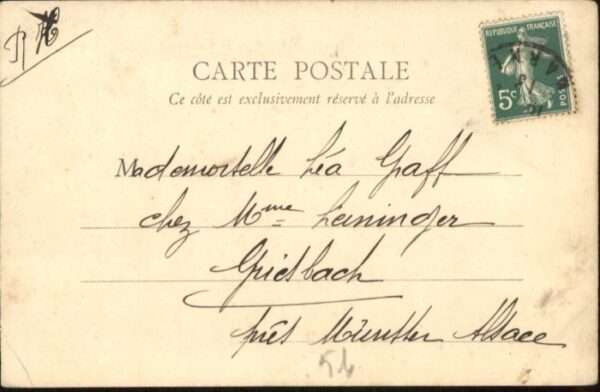 RÉPUBLIQUE FRANÇAISE
5c
POS
CARTE POSTALE
Ce côté est exclusivement réservé à l'adresse
Mademoiselle Léa Graff
chez Mme Leininger
Griesbach
près Münster Alsace
56